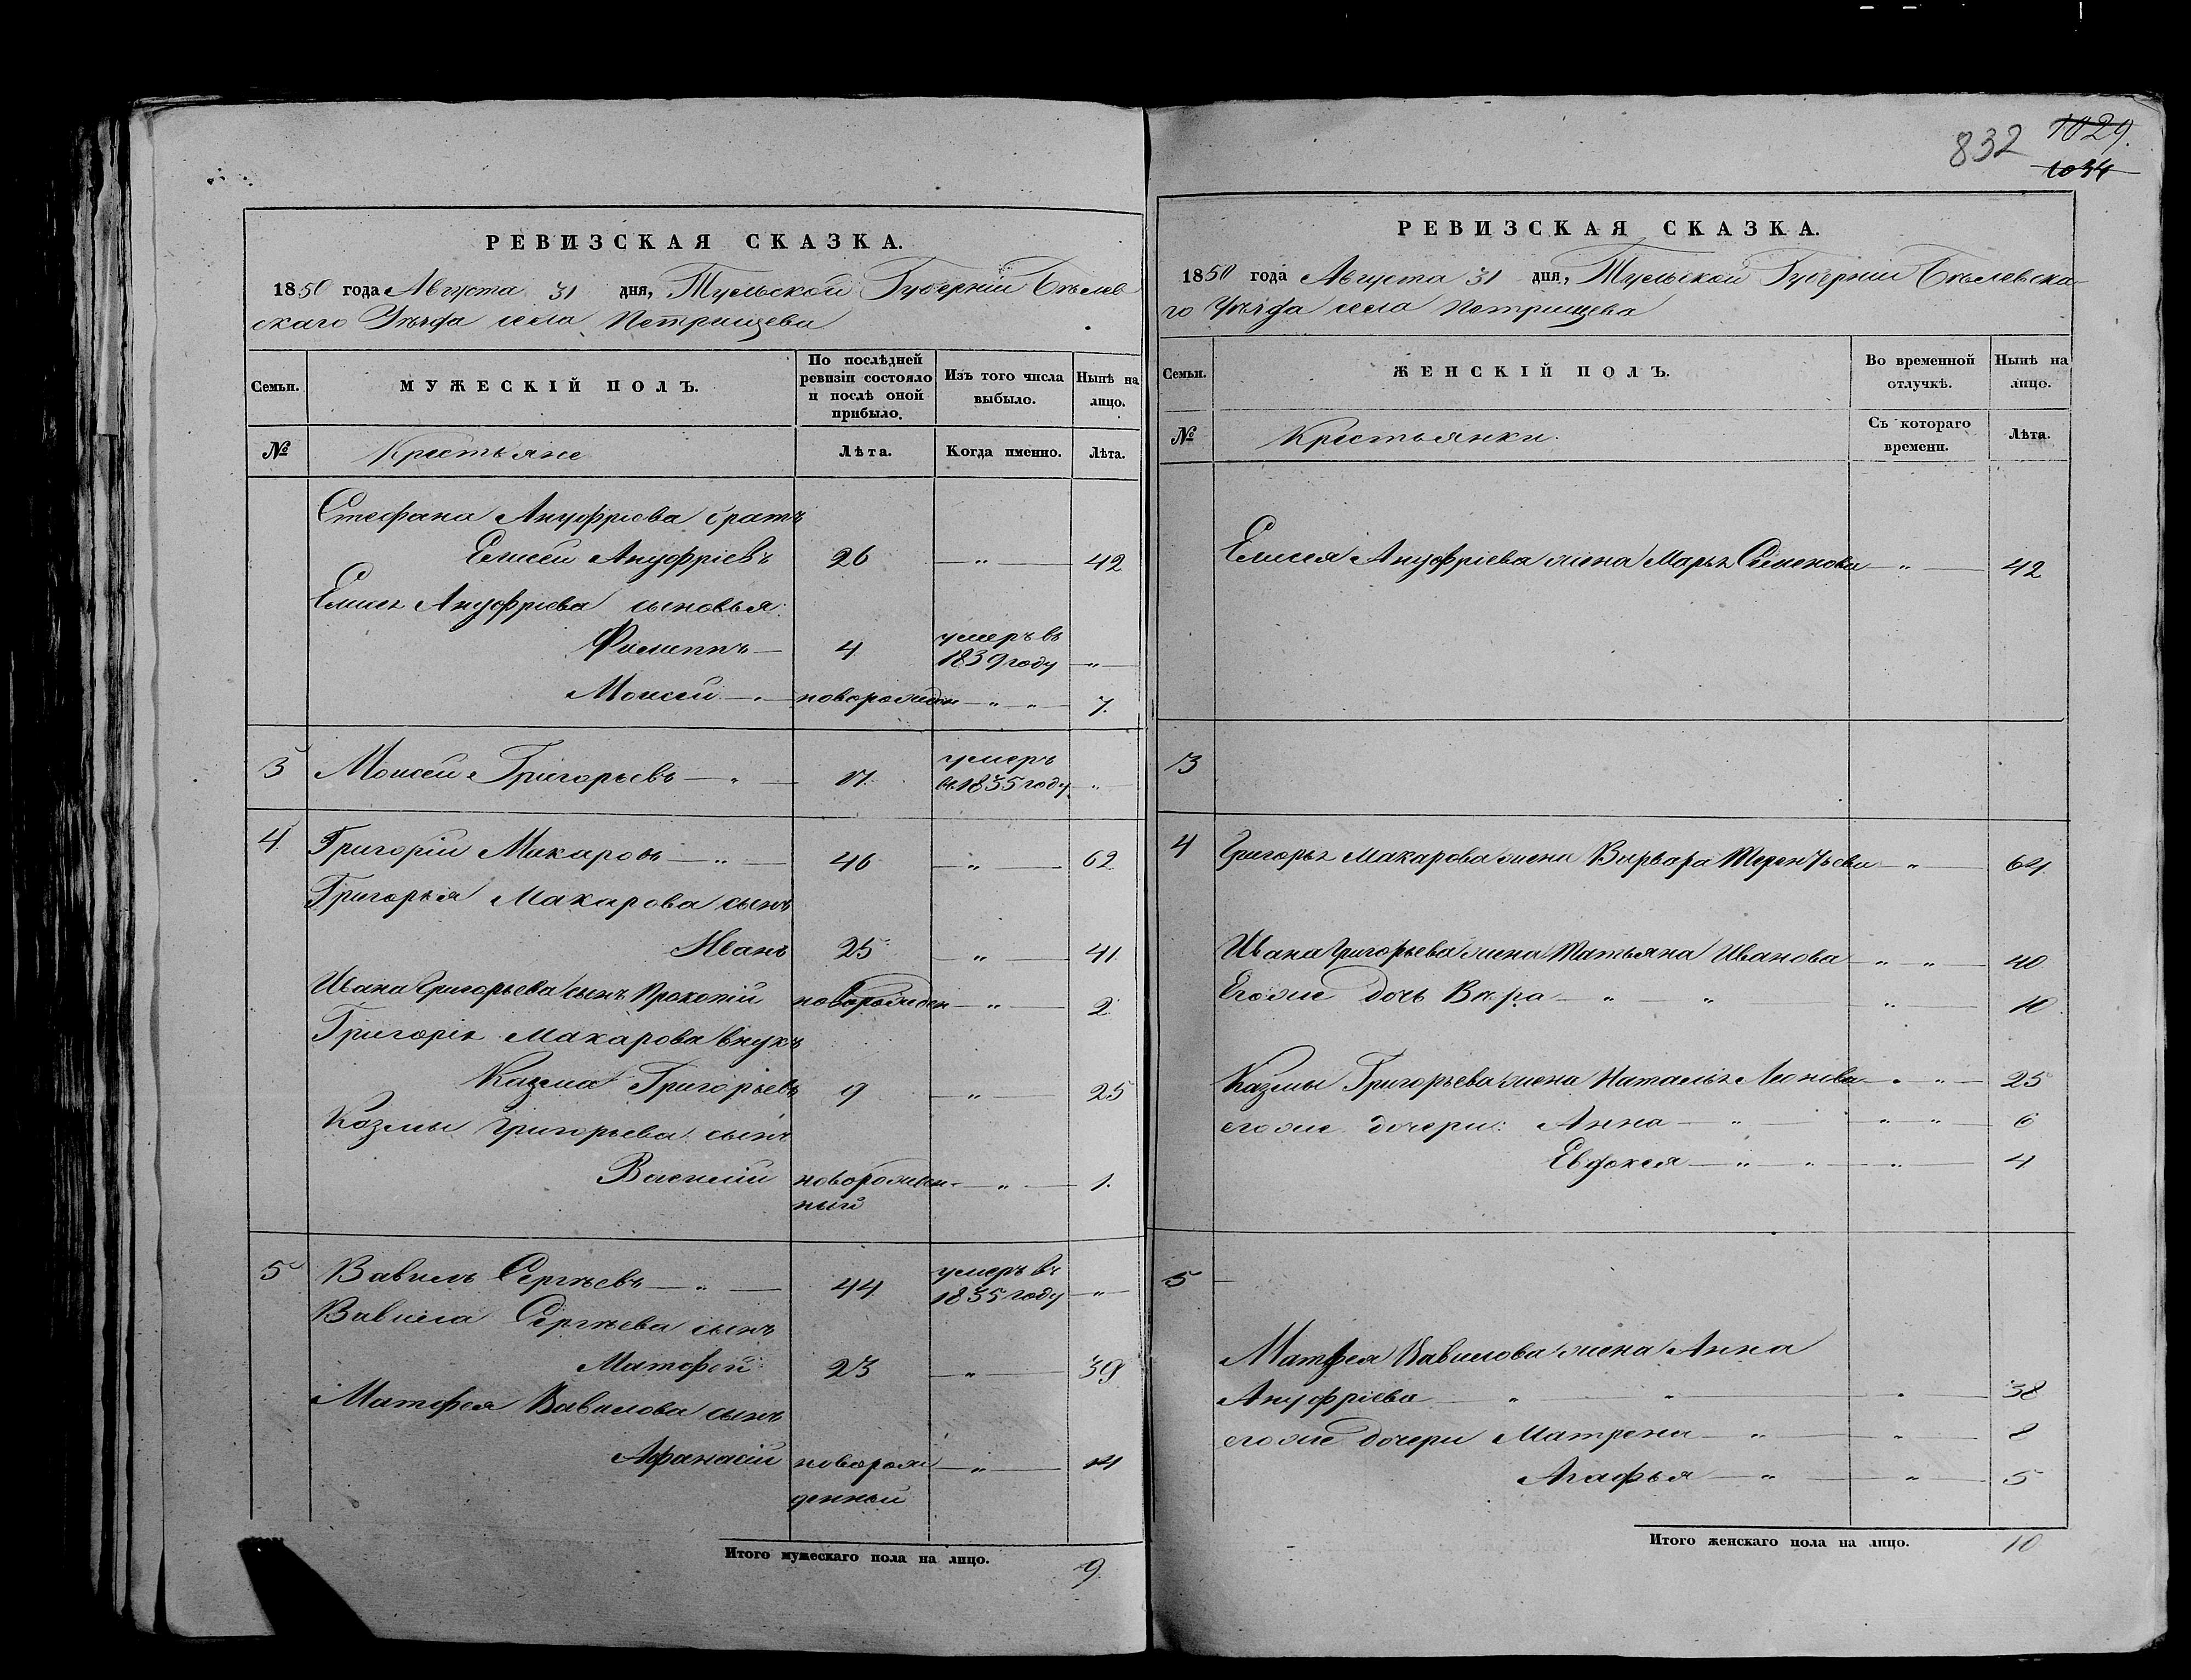 832 1029.
1034
РЕВИЗСКАЯ СКАЗКА.
1850 года Августа 31 дня, Тульской Губерніи Бѣлев
скаго Уѣзда села Петрищева
Семьи. МУЖЕСКІЙ ПОЛЪ. По послѣдней ревизіи состояло и послѣ оной прибыло. Изъ того числа выбыло. Нынѣ на лицо.
№ Крестьяне Лѣта. Когда именно. Лѣта.
Стефана Ануфріева братъ
Елисей Ануфріевъ 26 — " — 42
Елисея Ануфріева сыновья:
Филиппъ — 4 умеръ въ 1839 году — " —
Моисей — " — новорожден — " " — 7.
3 Моисей Григорьевъ — " — 17. умеръ въ 1835 году. "
4. Григорій Макаровъ — " — 46 — " — 62
Григорья Макарова сынъ
Иванъ 25 — " — 41
Ивана Григорьева сынъ Прокопій новорожден — " — 2
Григорія Макарова внукъ
Казма Григорьевъ 9 — " — 25
Козмы Григорьева сынъ
Василій новорожден- — " — 1.
ный
5 Вавилъ Сергѣевъ — " — 44 умеръ въ 1835 году — " —
Вавила Сергѣева сынъ
Матфей 23 — " — 39
Матфея Вавилова сынъ
Афанасій новорож — " — 14
денный
Итого мужескаго пола на лицо. 9.
РЕВИЗСКАЯ СКАЗКА.
1850 года Августа 31 дня, Тульской Губерніи Бѣлевска
го Уѣзда села Петрищева
Семьи. ЖЕНСКІЙ ПОЛЪ. Во временной отлучкѣ. Нынѣ на лицо.
№ Крестьянки. Съ котораго времени. Лѣта.
Елисея Ануфріева жена Марья Семенова — " — 42
3
4 Григорья Макарова жена Варвара Терентьева — " — 64
Ивана Григорьева жена Татьяна Иванова — " " — 40
Его же дочь Вѣра — " — " " — 10.
Казмы Григорьева жена Наталья Леонова — " " — 25
его же дочери: Анна — " — " " — 6
Евдокея — " — " — " — 4
5 —
Матфея Вавилова жена Анна
Ануфріева — " — " — " — 38
его же дочери Матрена — " — " — 8
Агафья — " — " — 5
Итого женскаго пола на лицо. 10